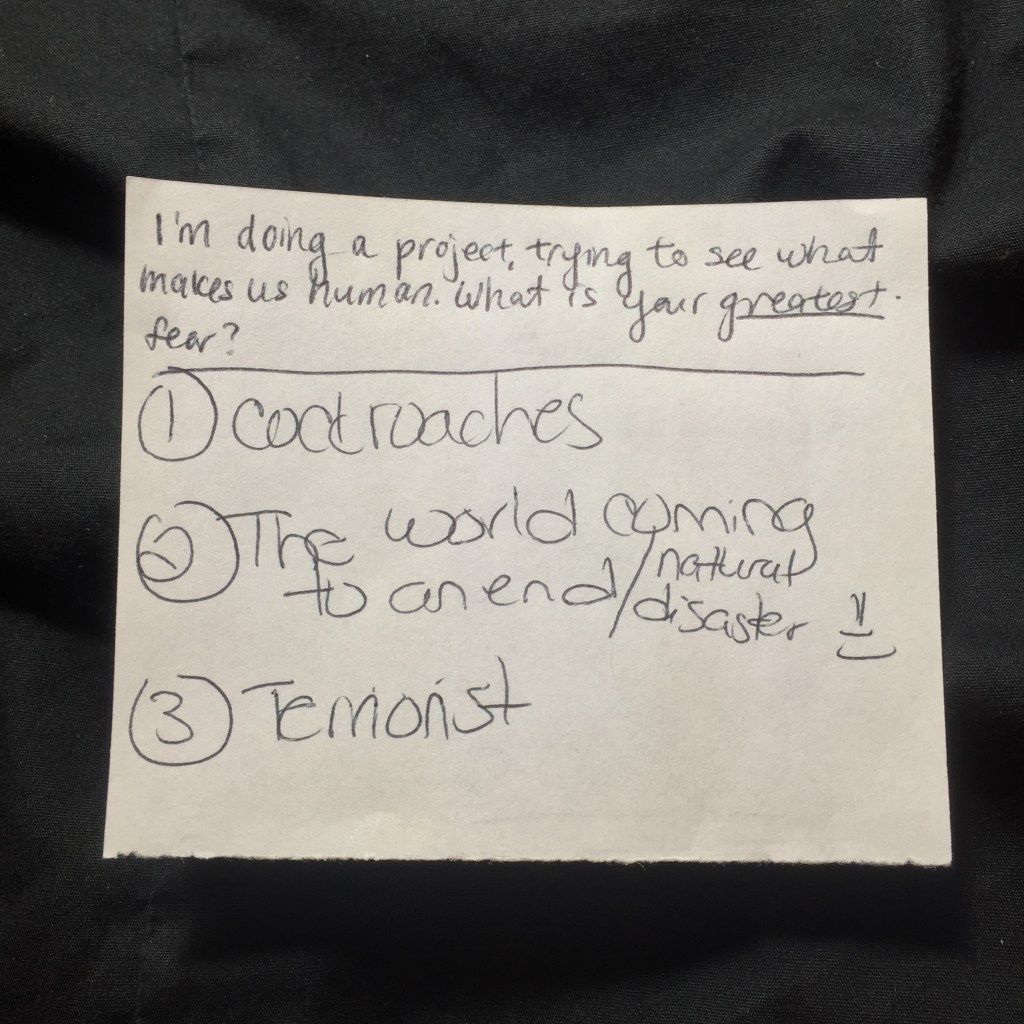 I'm doing a project, trying to see what
makes us human. What is your greatest
fear?
① cockroaches
② The world coming
to an end / natural
disaster
③ Terrorist